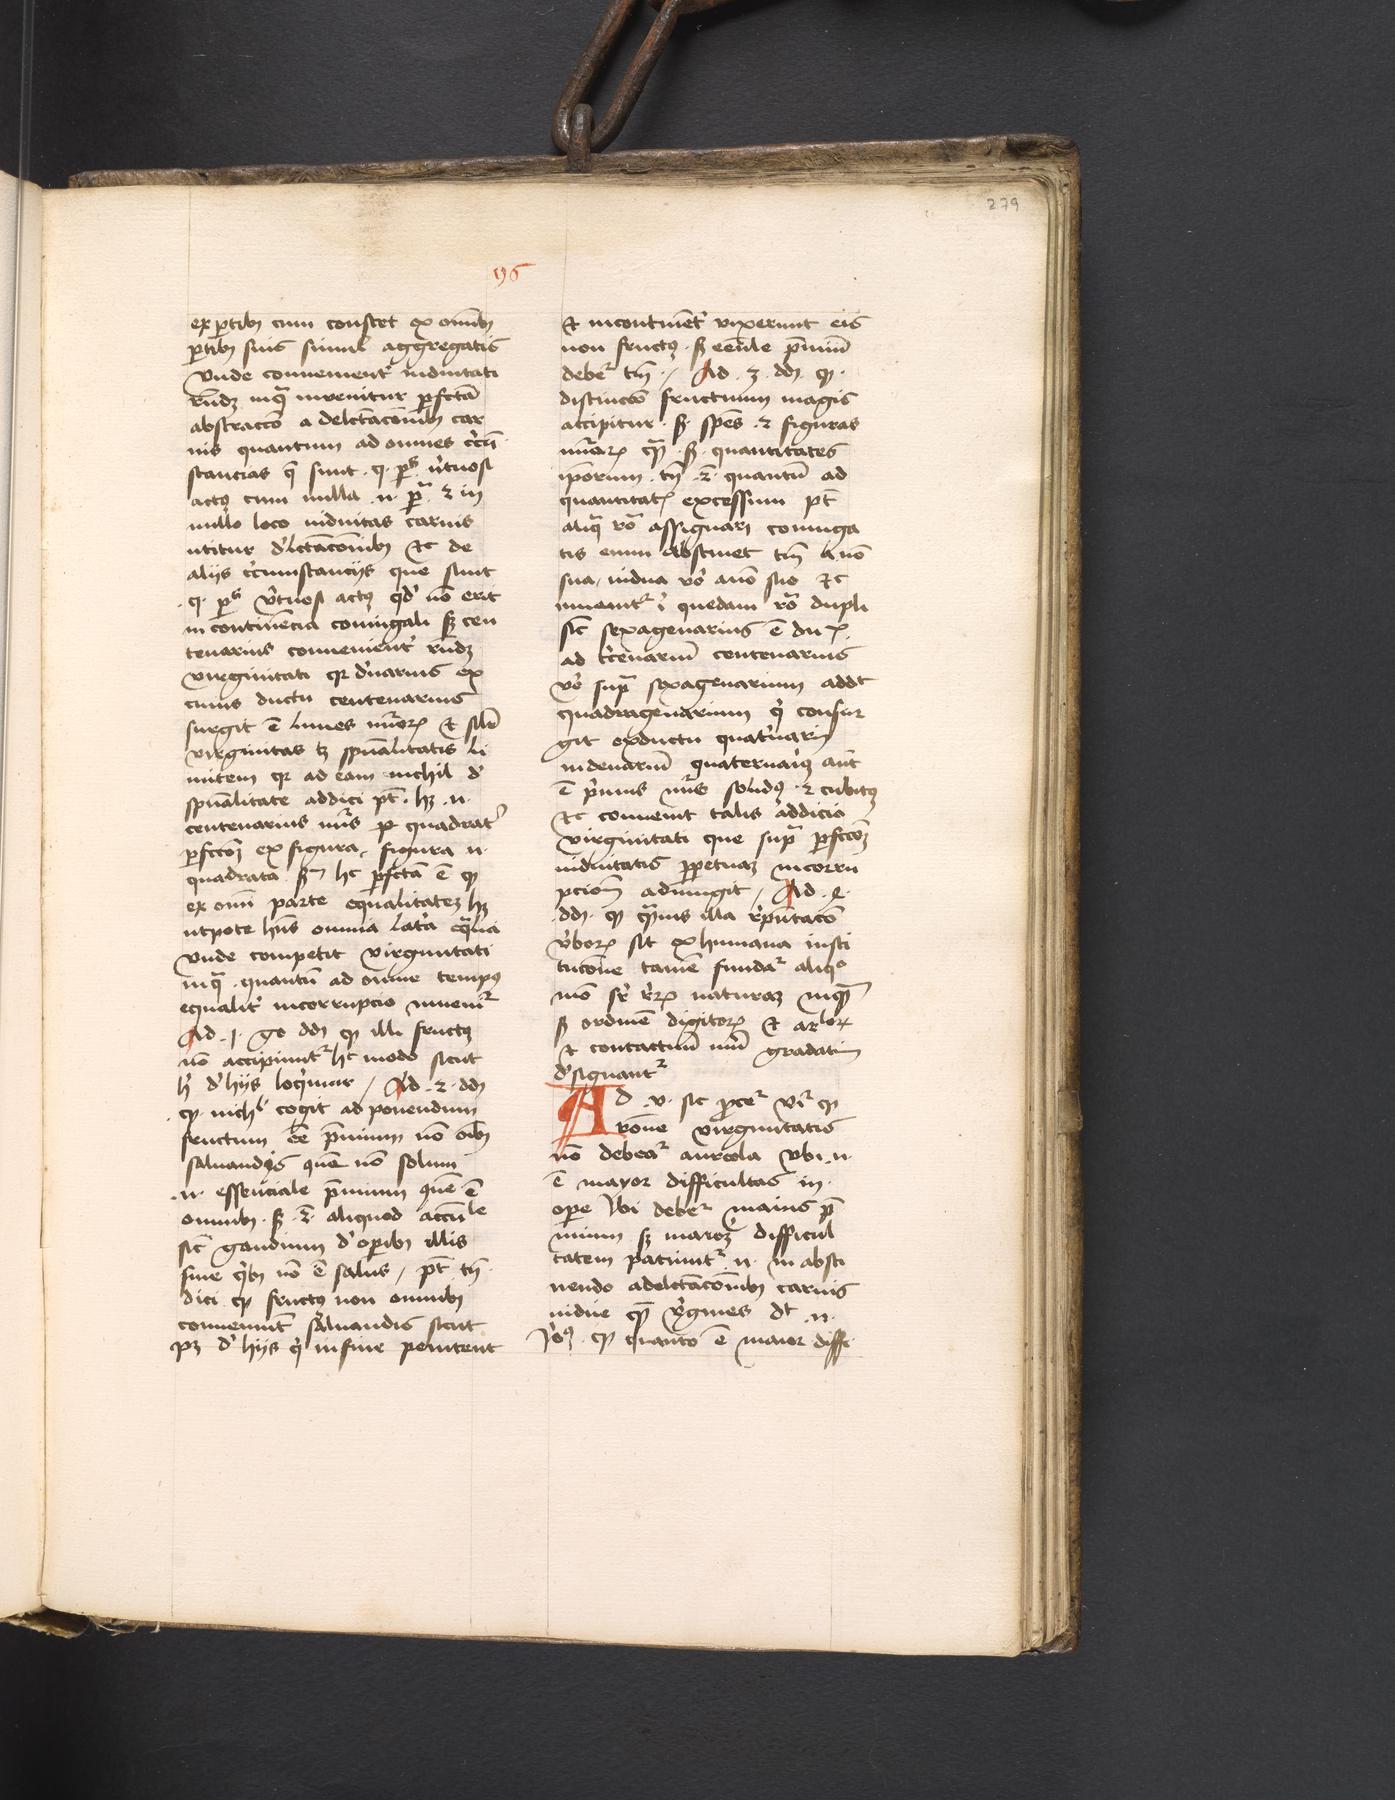 279
196
ex ꝑtibꝫ cum constet ex omībꝫ
ꝑtibꝫ suis simul aggregatis
Vnde convenient᷑ viduitati
rn̄dꝫ inqͣ invenitur ꝑfctā
abstraccō a delctacōnibꝫ car
nis quantum ad omnes cͥcū
stancias q̄ sunt
actꝯ cum nulla .n. et in
nullo loco viduitas carnis
utitur d'lctacōnibꝫ etc de
alijs cͥcumstancijs que sunt
v̾tuosi actꝯ qd' nō erit
in continēcia coniugali sꝫ cen
tenarius convenient᷑ rn̄dꝫ
virginitati qꝛ d'narius ex
cuius ductu centenarius
surgit ē limes nūorꝝ et sil̄r
virginitas tꝫ spūalitatis li
mitem qꝛ ad eam nichil d'
spūalitate addici pt̄ . hꝫ .n.
centenarius nūs quadrat᷑
ꝑfccōꝫ ex figura , figura .n.
quadrata hc ꝑfctā ē ꝙ
ex om̄i parte equalitatez hꝫ
utpote hn̄s omnia lat'a eq̄lia
vnde competit virginitati
inqͣ . quantū ad omne tempꝯ
equalit᷑ incorrupcio invenit᷑
Ad . 1 . dd̄ ꝙ illi fructꝯ
nō accipiunt᷑ hc modo sicut
h' d' hijs loqͥmur / Ad . 2 . dd̄
ꝙ nichͥl cogit ad ponendum
fructum eē p̄mium nō oībꝫ
saluandis quē nō solum
.n. essenciale p̄mium quē ē
omnibꝫ . sꝫ . ē . aliquod accn̄le
sīc gaudium d' oꝑibꝫ illis
sine qͥbꝫ nō ē salus / pt̄ tn̄
dici ꝙ fructꝯ non omnibꝫ
conveniunt saluandis sicut
pꝫ d' hijs qͥ in fine penitent
et incontinent᷑ vixerunt eis
non fructꝯ . sꝫ eēnle p̄miū
debet᷑ tm̄ / Ad . 3 . dd̄ ꝙ .
distinccō fructuum magis
accipitur . sꝫ . sp̄es . et figuras
nūarꝝ qͣꝫ . sꝫ . quantitates
ip̄orum . tn̄ . ē . quantū ad
quantitatꝭ excessum pt̄
aliqͣ rō assignari coniuga
tis enim abstinet tm̄ a nō
sua , vidua v̾o a nō suo etc
invenit᷑ ī quedam rō dupli
sīc sexagenarius ē duꝝ
ad t̾cenariū centenarius
v̾o supͣ sexagenarium addt
quadragenarium qͥ consur
git ex ductu quat'narij
in denariū quaternariꝯ aūt
ē pͥmus nūs solidꝯ . et cubitꝯ
etc convenit talis addicio
virginitati que supͣ ꝑfccōꝫ
viduitatis ꝑpetuaꝫ incorru
pcionē adiungit / Ad . 4 .
dd̄ . ꝙ qͣmuis illa rep̄ntacō
v̾borꝝ sit ex humana insti
tucōne tamē fundat᷑ aliqͦ
mō naturaꝫ inqͣ
sꝫ ordinē digitorꝝ et
et contactuū gradatim
d'signant᷑
Ad . v . sic ꝓcet᷑ vi᷑ ꝙ
rōne virginitatis
nō debeat᷑ aureola vbi .n.
ē mayor difficultas in .
oꝑe ibi debet᷑ maius p̄
mium sꝫ maiorē difficul
tatem patiunt᷑ .n. in absti
nendo a delctacōnibꝫ carnis
vidue qͣꝫ v'gines dt̄ .n.
ꝙ quanto ē maior diffi